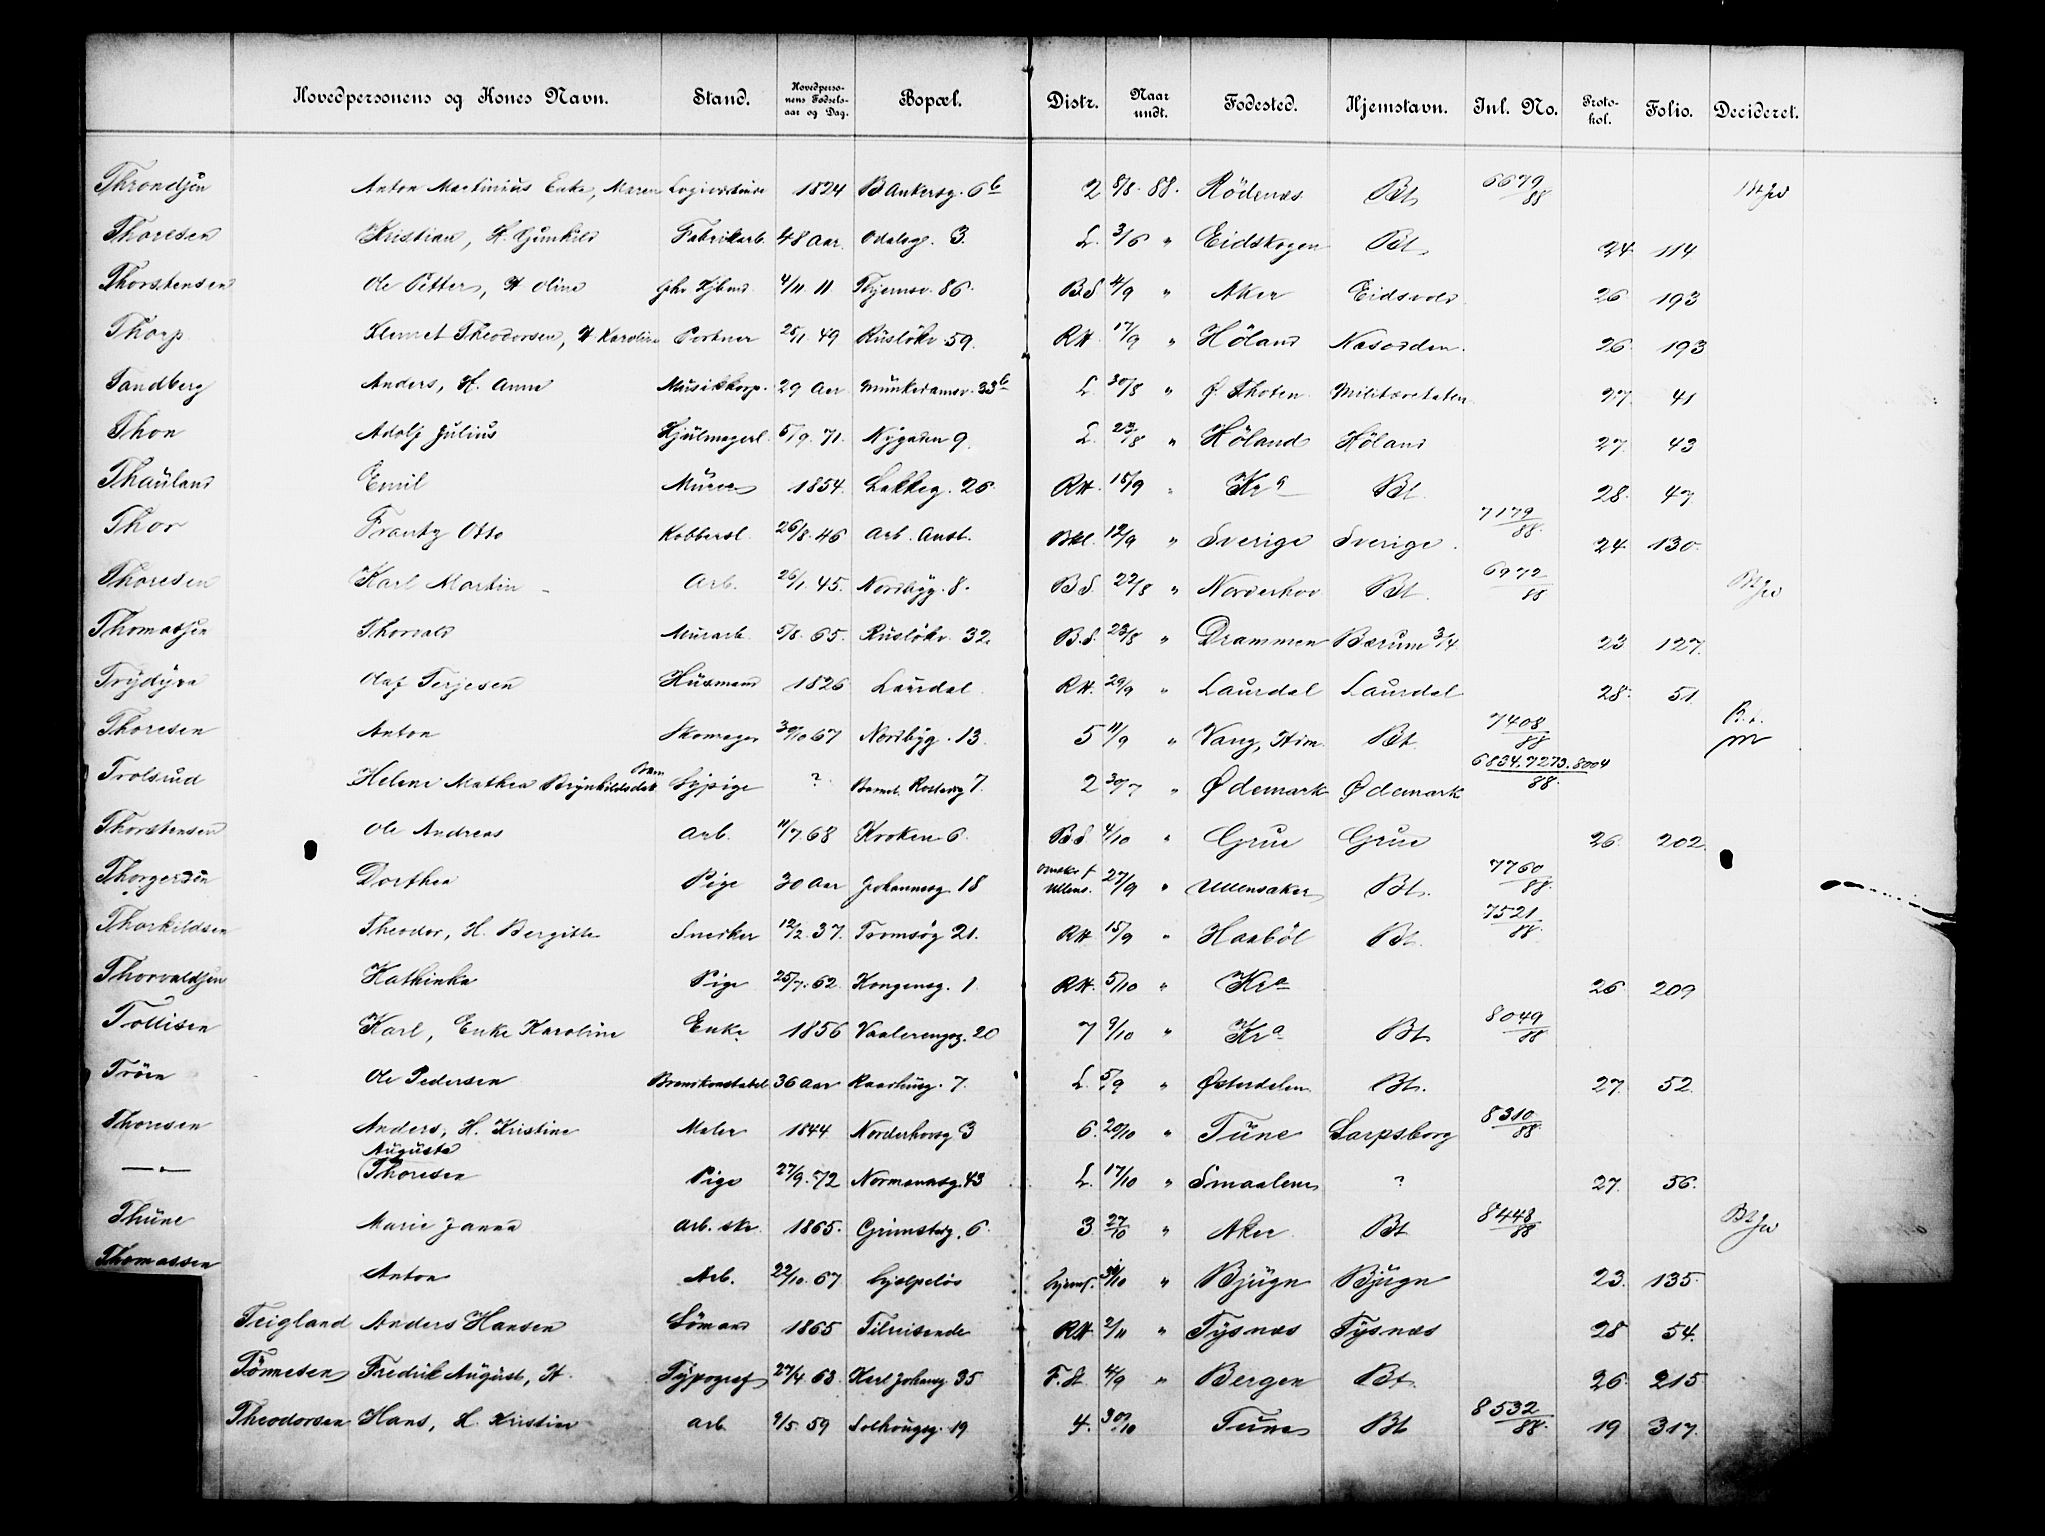 Hovedpersonens og Kones Navn. Stand. Hovedperso-nens Fødsels-aar og Dag. Bopæl. Distr. Naar undt. Fødested. Hjemstavn. Inl. No. Proto-kol. Folio. Decideret.
Throndsen Anton Martinius Enke, Maren 1824 Bankersg. 6b 2 8/8 88. Rödenæs Bt 6679/88
Thoresen Kristian, H. Gunhild Fabrikarb. 48 Aar. Odalsg. 3. L. 3/6 " Eidskogen Bt 24 114
Thorstensen Ole Petter, H Oline 4/11 11 86. B.S 4/9 " Aker Eidsvold 26 193
Thorp Klemet Theodorsen, H Karoline Portner 25/1 49 Rüsløkv. 59. RH. 17/9 " Höland Næsodden. 26 193
Sandberg Anders, H. Anna Musikkorp. 29 Aar Munkedamsv. 33b L. 30/8 " Ø. Thoten Militæretaten 27 41
Thon Adolf Julius Hjulmagerl. 5/9. 71. Nygaden 9. L. 23/8 " Höland Höland 27. 43
Thauland Emil Murer 1854. Lakkeg. 26. RH. 15/9 " Kra Bt. 28. 47
Thor Frantz Otto Kobbersl. 26/8. 46 Arb. Anst. Bkl. 12/9 " Sverige Sverige. 7179/88. 24 130.
Thoresen Karl Martin Arb. 26/1. 45. Nordbyg. 8. B.S. 22/8 " Norderhov Bt. 6972/88 Bt
Thomassen Thorvald Murarb. 5/8. 65. Rüsløkv. 32. B.S. 23/8 " Drammen Bærum 3/4 23 127.
Trydyra Olaf Terjesen Husmand 1826 Laurdal. RH. 29/9 " Laurdal Laurdal 28. 51.
Thoresen Anton Skomager 30/10 67 Nordbyg. 13. 5 11/9 " Vang, Hdm. Bt. 7408/88 B.t.
Trolsrud Helene Mathea Brynhildsdat. Barn Sypige ? Barnet. 7. 2 30/7 " Ødemark Ødemark 6834.7273.8004/88.
Thorstensen Ole Andreas Arb. 11/7. 68 Kroken 6. B.S 4/10 " Grue Grue 26. 202
Thorgersen Dorthea Pige 30 Aar Johannesg. 18 Ullens. 27/9 " Ullensaker Bt. 7760/88.
Thorkildsen Theodor, H. Bergitte Snedker 12/2. 37. Tromsøg 21. RH. 15/9 " Haabøl Bt. 7521/88.
Thorvaldsen Kathinka Pige 25/7. 62. Kongensg. 1. RH. 5/10 " Kra 26 209
Tollisen Karl, Enke Karoline Enke 1856 Vaalerengsg. 20 7 9/10 " Kra Bt 8049/88
Trøen Ole Pedersen Brandkonstabel 36 Aar Raadhusg. 7. L. 5/9 " Østerdalen Bt. 27. 52.
Thoresen Anders, H. Kristine Maler 1844 Norderhovsg 3 6. 20/10 " Tune Sarpsborg 8310/88
— " — Augusta Thoresen Pige 27/9. 72 Normannsg. 43 L. 17/10 " Smaalene ? 27. 56.
Thune Marie Janna 1865. Grimstadg. 6. 3 27/10 " Aker. Bt 8448/88 Bt
Thomassen Anton Arb. 22/10. 67 Hjælpeløs Hjemf. 30/10 " Bjugn Bjugn 23. 135.
Teigland Anders Hansen Sømand 1865 Tilreisende RH 2/11 " Tysnæs Tysnæs 28 54.
Tönnesen Fredrik August, H. Typograf 27/4. 63. Karl Johansg. 35 F.St 4/9 " Bergen Bt. 26. 215
Theodorsen Hans, H. Kristine Arb 9/5. 59 Solhaugsg. 19 4. 30/10 Tune Bt 8532/88. 19 317.